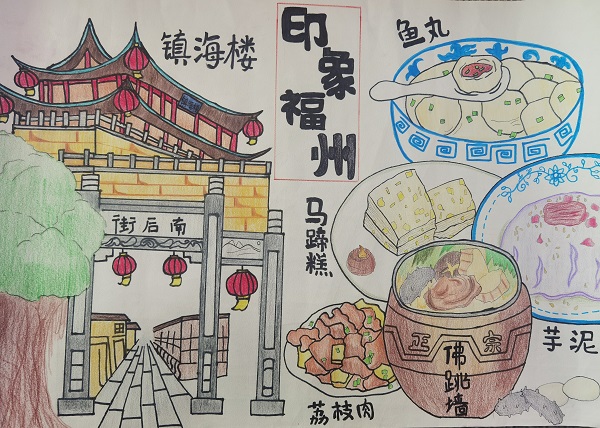 镇海楼
印象福州
鱼丸
街后南
马蹄糕
正宗
佛跳墙
芋泥
荔枝肉